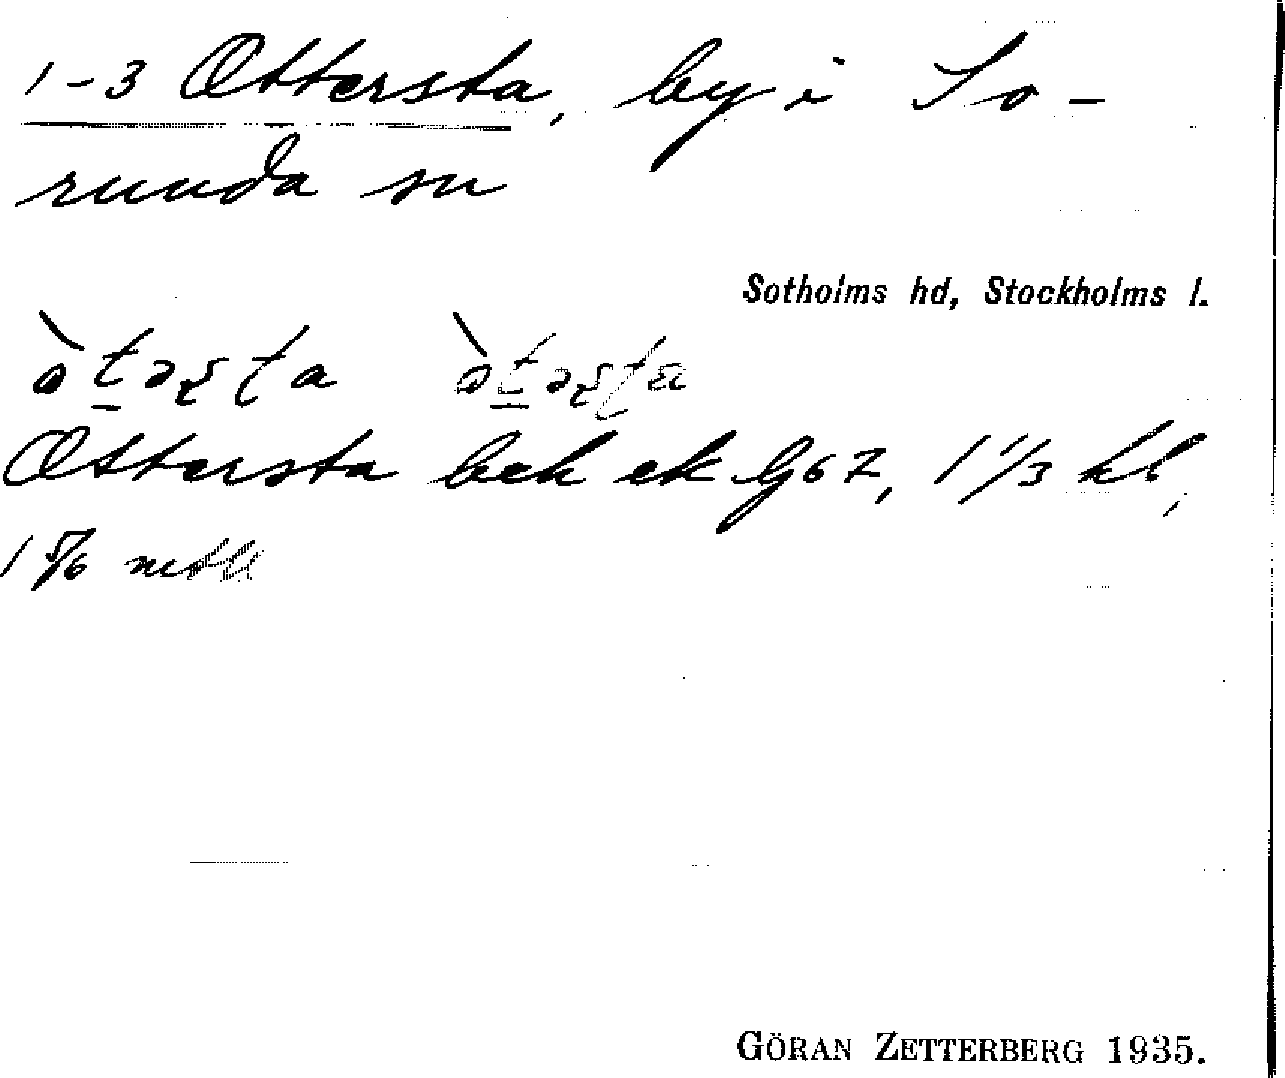 1-3 Ottersta, by i So-
runda sn
Sotholms hd, Stockholms l.
Ottersta bek ek G67, 1 1/3 kl,
1 5/6 mtl
GÖRAN ZETTERBERG 1935.